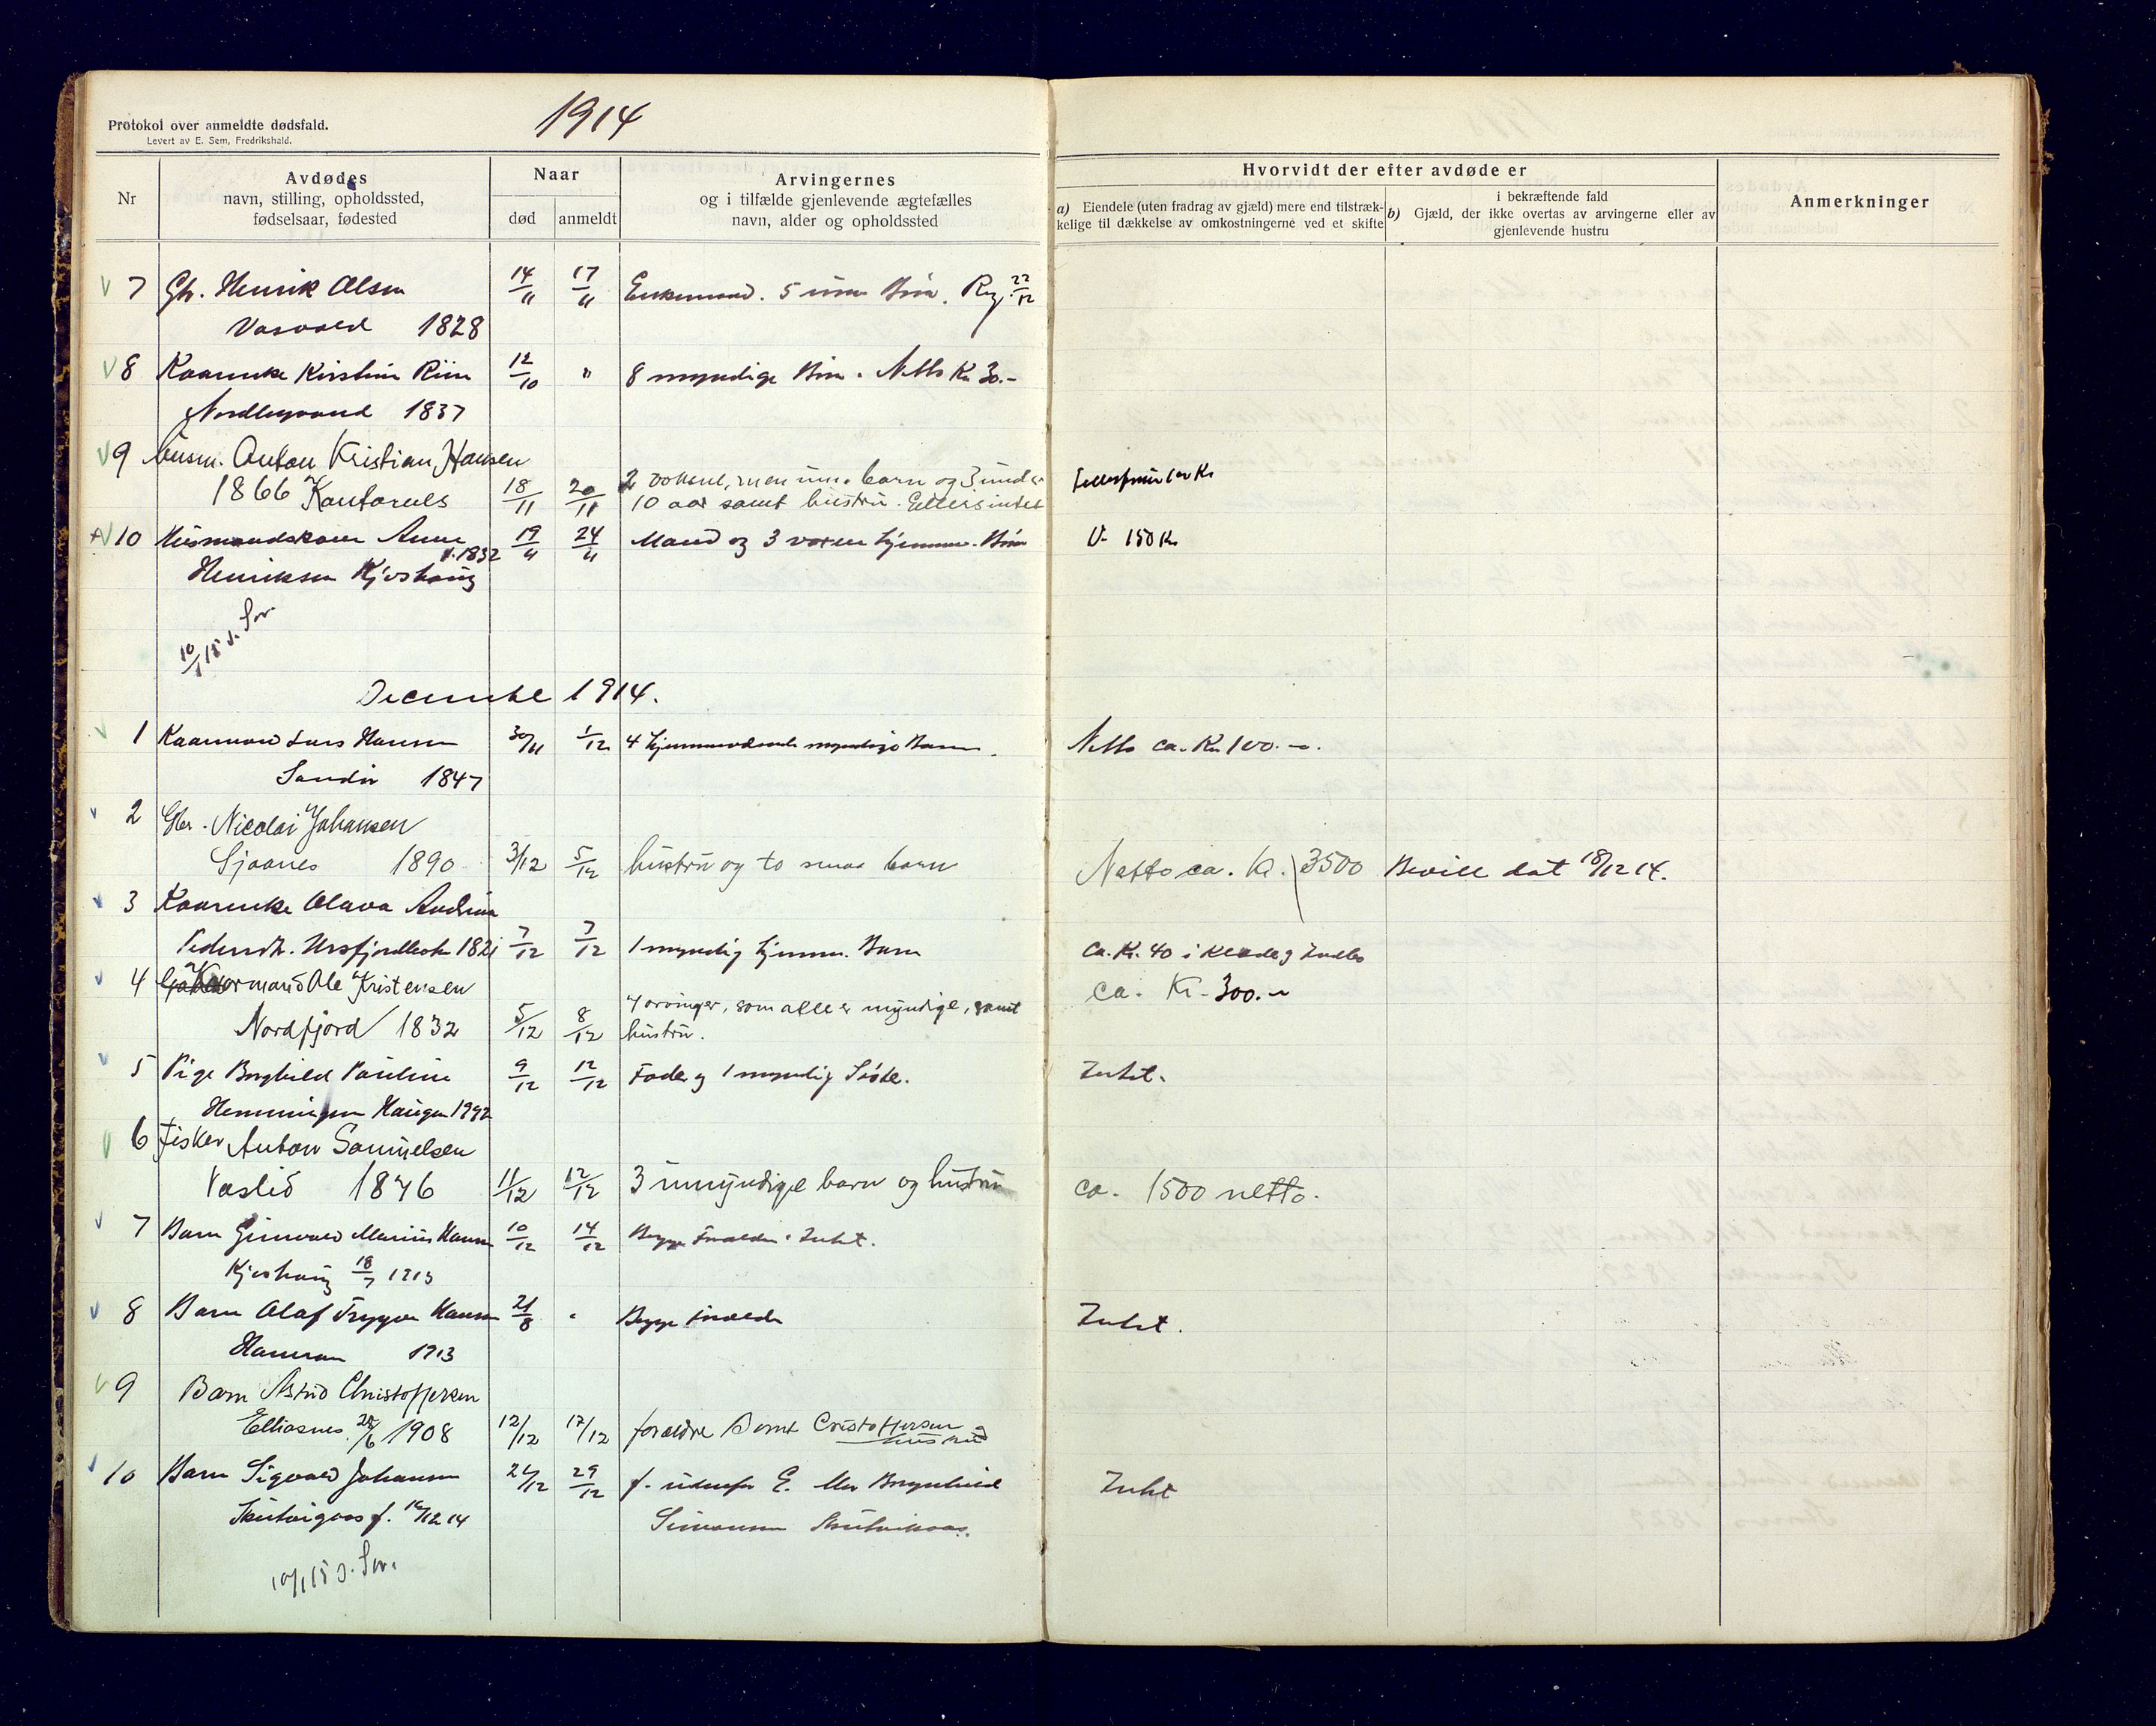 Protokol over anmeldte dødsfald.
Levert av E. Sem, Fredrikshald.
1914
Nr
Avdødes
navn, stilling, opholdssted,
fødselsaar, fødested
Naar
død
anmeldt
Arvingernes
og i tilfælde gjenlevende ægtefælles
navn, alder og opholdssted
Hvorvidt der efter avdøde er
a) Eiendele (uten fradrag av gjæld) mere end tilstræk-
kelige til dækkelse av omkostningerne ved et skifte
i bekræftende fald
b) Gjæld, der ikke overtas av arvingerne eller av
gjenlevende hustru
Anmerkninger
7 Gbr. Henrik Olsen 14/11 17/11 Enkemand. 5 Børn. Reg. 22/12
1828
8 Kaarenke Kirstine 12/10 " 8 myndige Børn. Netto Kr 30.-
1837
9 Husm. Anton Kristian Hansen
1866 18/11 20/11 2 voksne, men um. barn og 3 under
10 aar samt hustru. Eiersintet
10 Husmandskone Anne 19/11 24/11 Mand og 3 voxne hjemme. Børn 150 Kr
f. 1832
Henriksen Kjøshaug
10/1 15 s. Sor.
December 1914.
1 Kaarmand Lars Hansen 30/11 1/12 4 myndige Barn. Netto ca. Kr 100.-
1847
2 Gbr. Nicolai Johansen
Sjaanes 1890 3/12 5/12 hustru og to smaa barn Netto ca. Kr. 3500 Bevill dat 18/12 14.
3 Kaarenke Olava Andrine
Pedersdt. 7/12 7/12 1 myndig hjemm. Barn ca. Kr. 40 i
4 Kaarmand Ole Kristensen ca. Kr. 300.-
Nordfjord 1832 5/12 8/12 7 arvinger, som alle er myndige, samt
hustru.
5 Pige Borghild Pauline 9/12 12/12 Fader og 1 myndig Søster. Intet.
Hemmingsen Haugen 1892
6 Fisker Anton Samuelsen
Vaslid 1876 11/12 12/12 3 umyndige barn og hustru ca. 1500 netto.
7 Barn Marius Hansen 10/12 14/12 Begge Forældre. Intet.
Kjøshaug 18/7 1913
8 Barn Olaf Trygve Hansen 21/8 " Begge forældre Intet.
1913
9 Barn Astrid Christoffersen
Elliasnes 28/6 1908 12/12 17/12 forældre Bernt Cristoffersen og
hustru
10 Barn Sigvard Johansen 26/12 29/12 f. udenfor E. Mor Intet
f. 16/12 14 Simonsen
10/1 15 s. Sor.